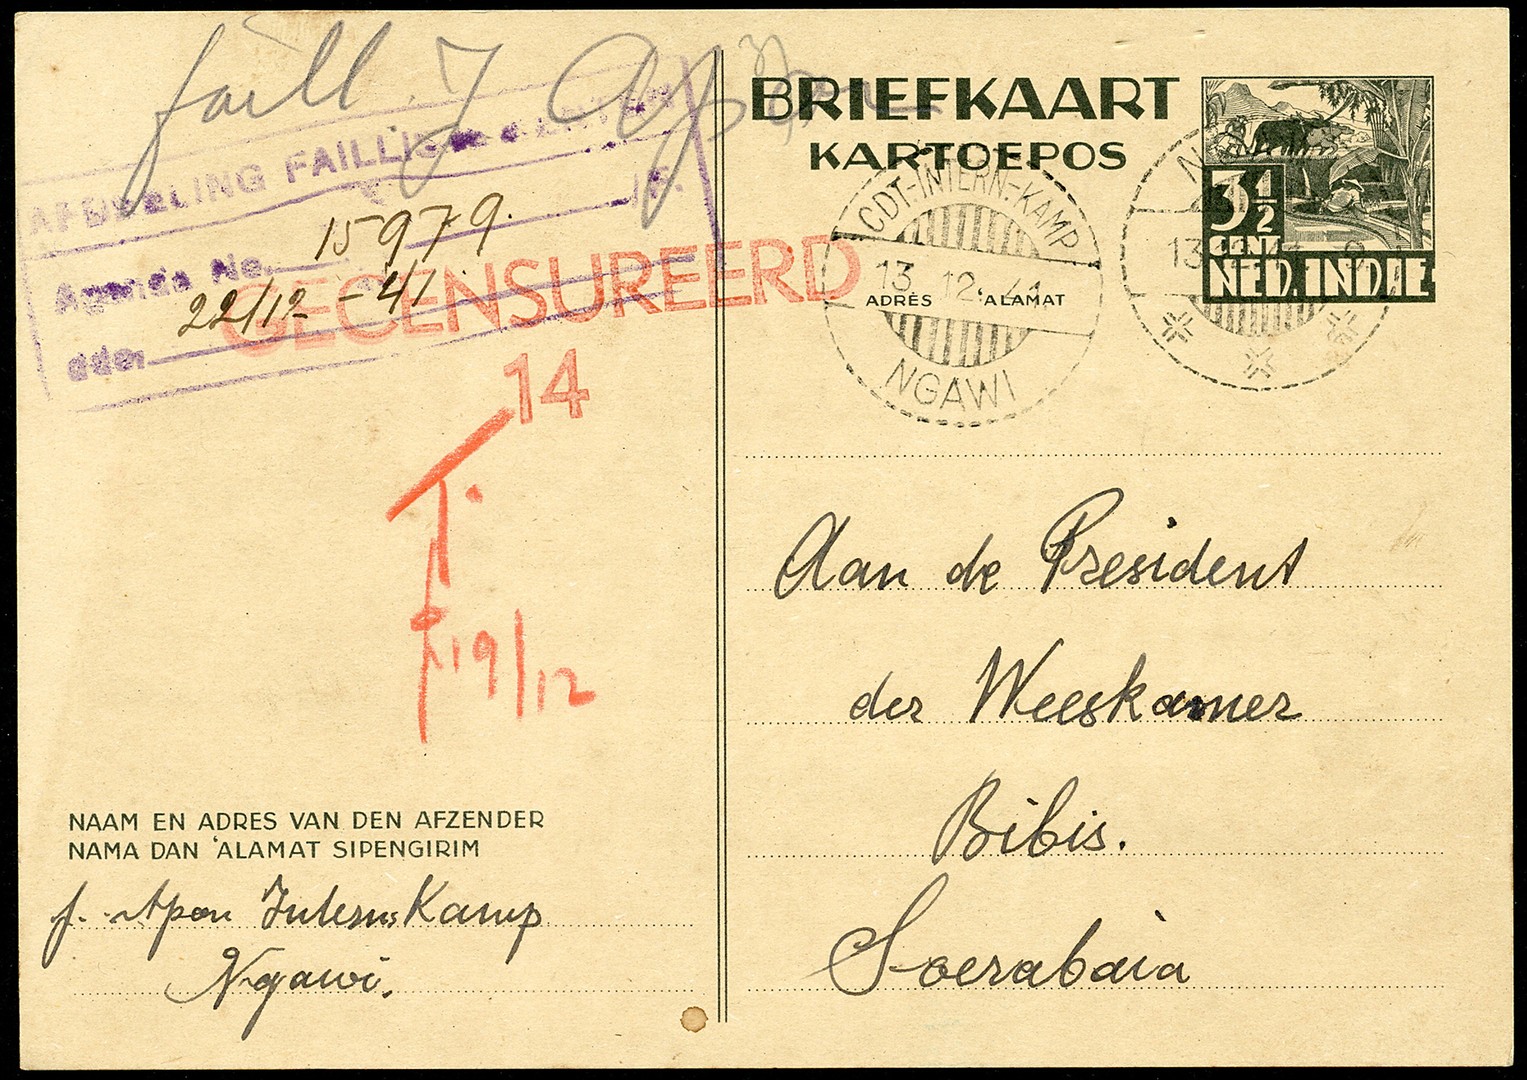 faill. J. Apon
AFDEELING FAILLISSEMENTEN
Agenda No. 15979.
dde. 22/12 - 41
GECENSUREERD
14
T.
19/12
NAAM EN ADRES VAN DEN AFZENDER
NAMA DAN 'ALAMAT SIPENGIRIM
J. Apon Intern. Kamp
Ngawi.
BRIEFKAART
KARTOEPOS
3½
CENT
NED. INDIE
CDT-INTERN.-KAMP
13. 12. 41
NGAWI
13
ADRES 'ALAMAT
Aan de President
der Weeskamer
Bibis.
Soerabaia